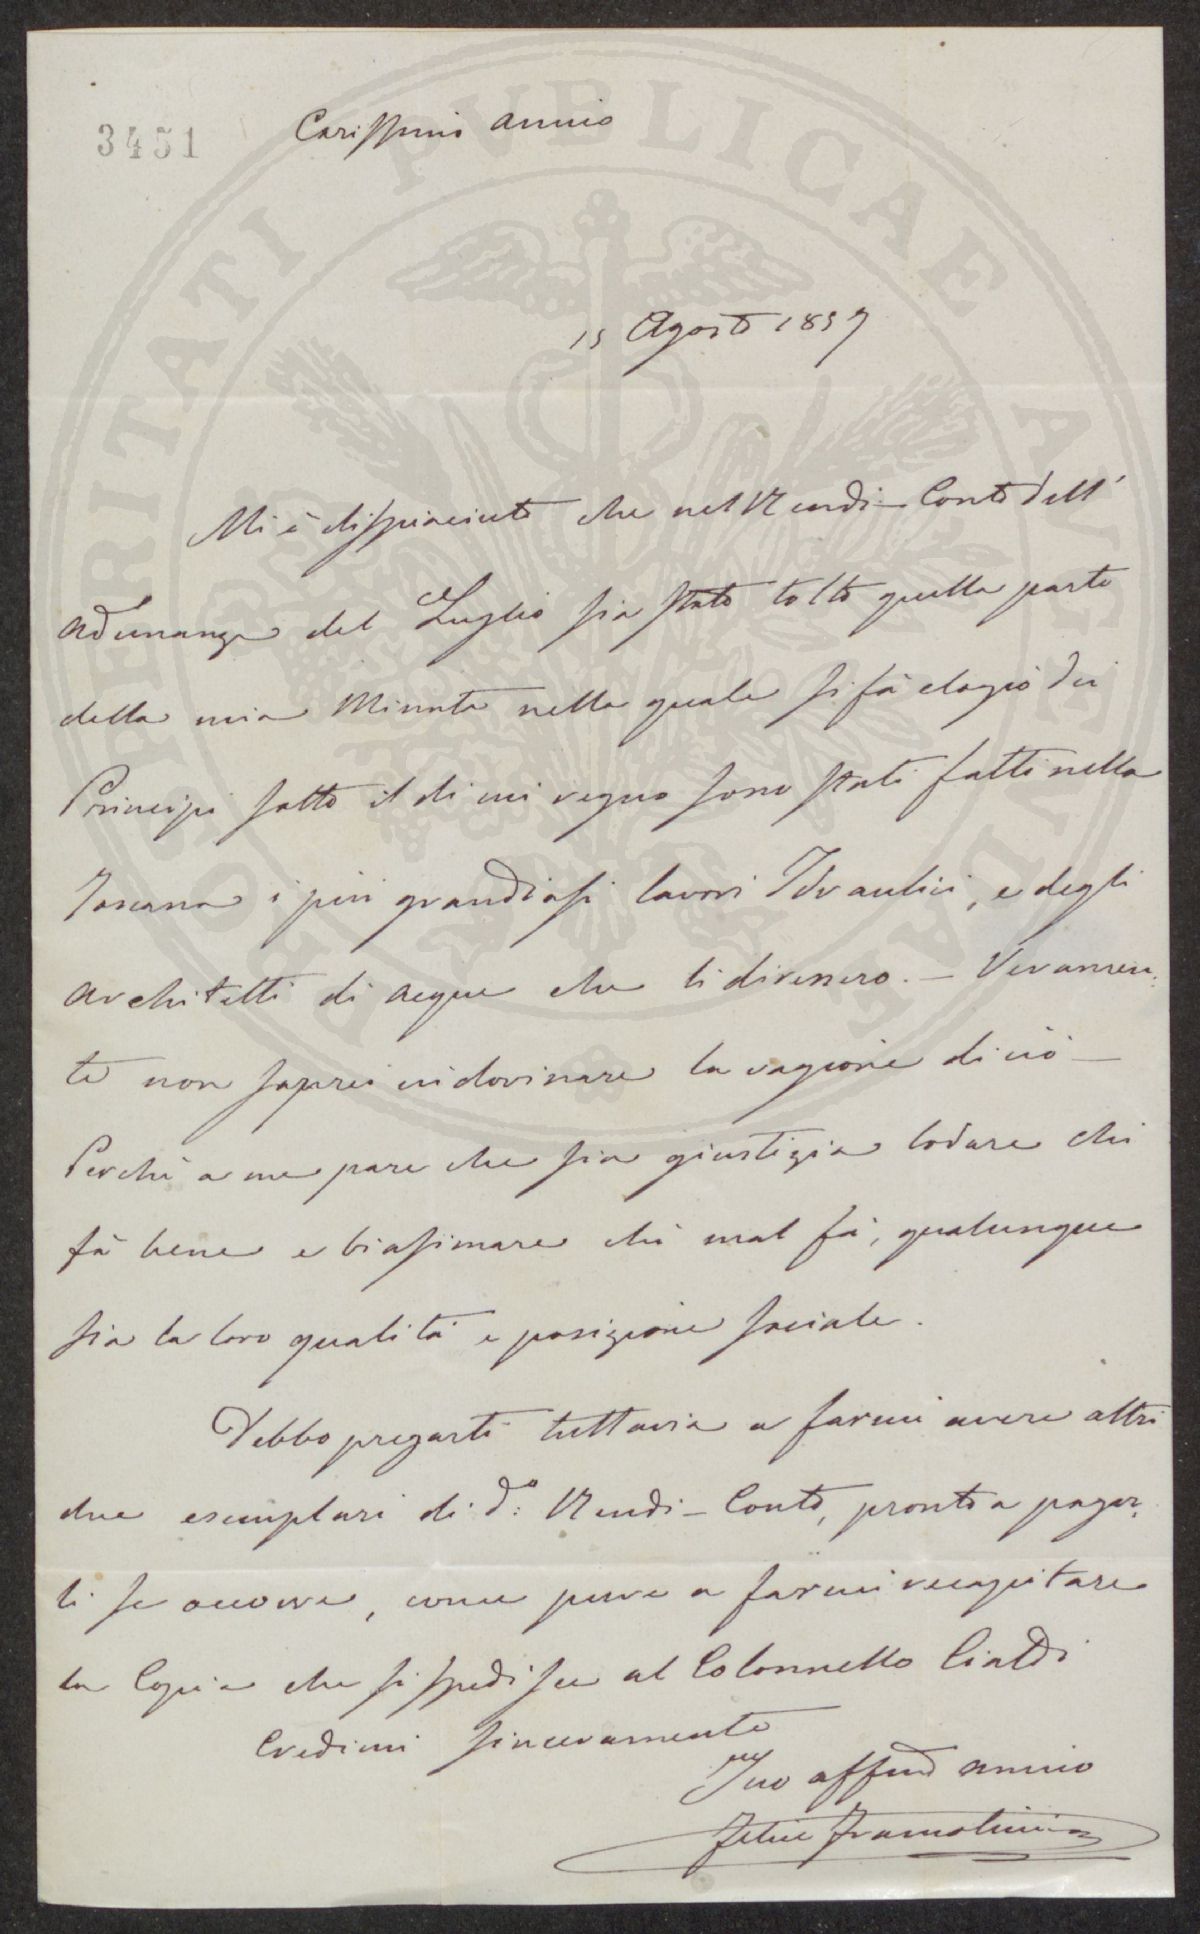 3451
Carissimo Amico
15 Agosto 1857
Mi è dispiaciuto che nel Rendi-Conto dell'
Adunanza del Luglio sia stato tolto quella parte
della mia Minuta nella quale si fà elogio dei
Principi sotto il di cui regno sono stati fatti nella
Toscana i più grandiosi lavori Idraulici, e degli
Architetti di Acque che li diressero. — Veramen:
te non saprei indovinare la ragione di ciò —
Perchè a me pare che sia giustizia lodare chi
fà bene e biasimare chi mal fà, qualunque
sia la loro qualità e posizione sociale.
Debbo pregarti tuttavia a farmi avere altri
due esemplari di d.o: Rendi-Conto, pronto a pagar,
li se occorre, come pure a farmi recapitare
la Copia che si spedisce al Colonnello Cialdi
Credimi sinceramente
Tuo affmo amico
Felice Francolini
PROSPERITATI PVBLICAE AVGENDAE